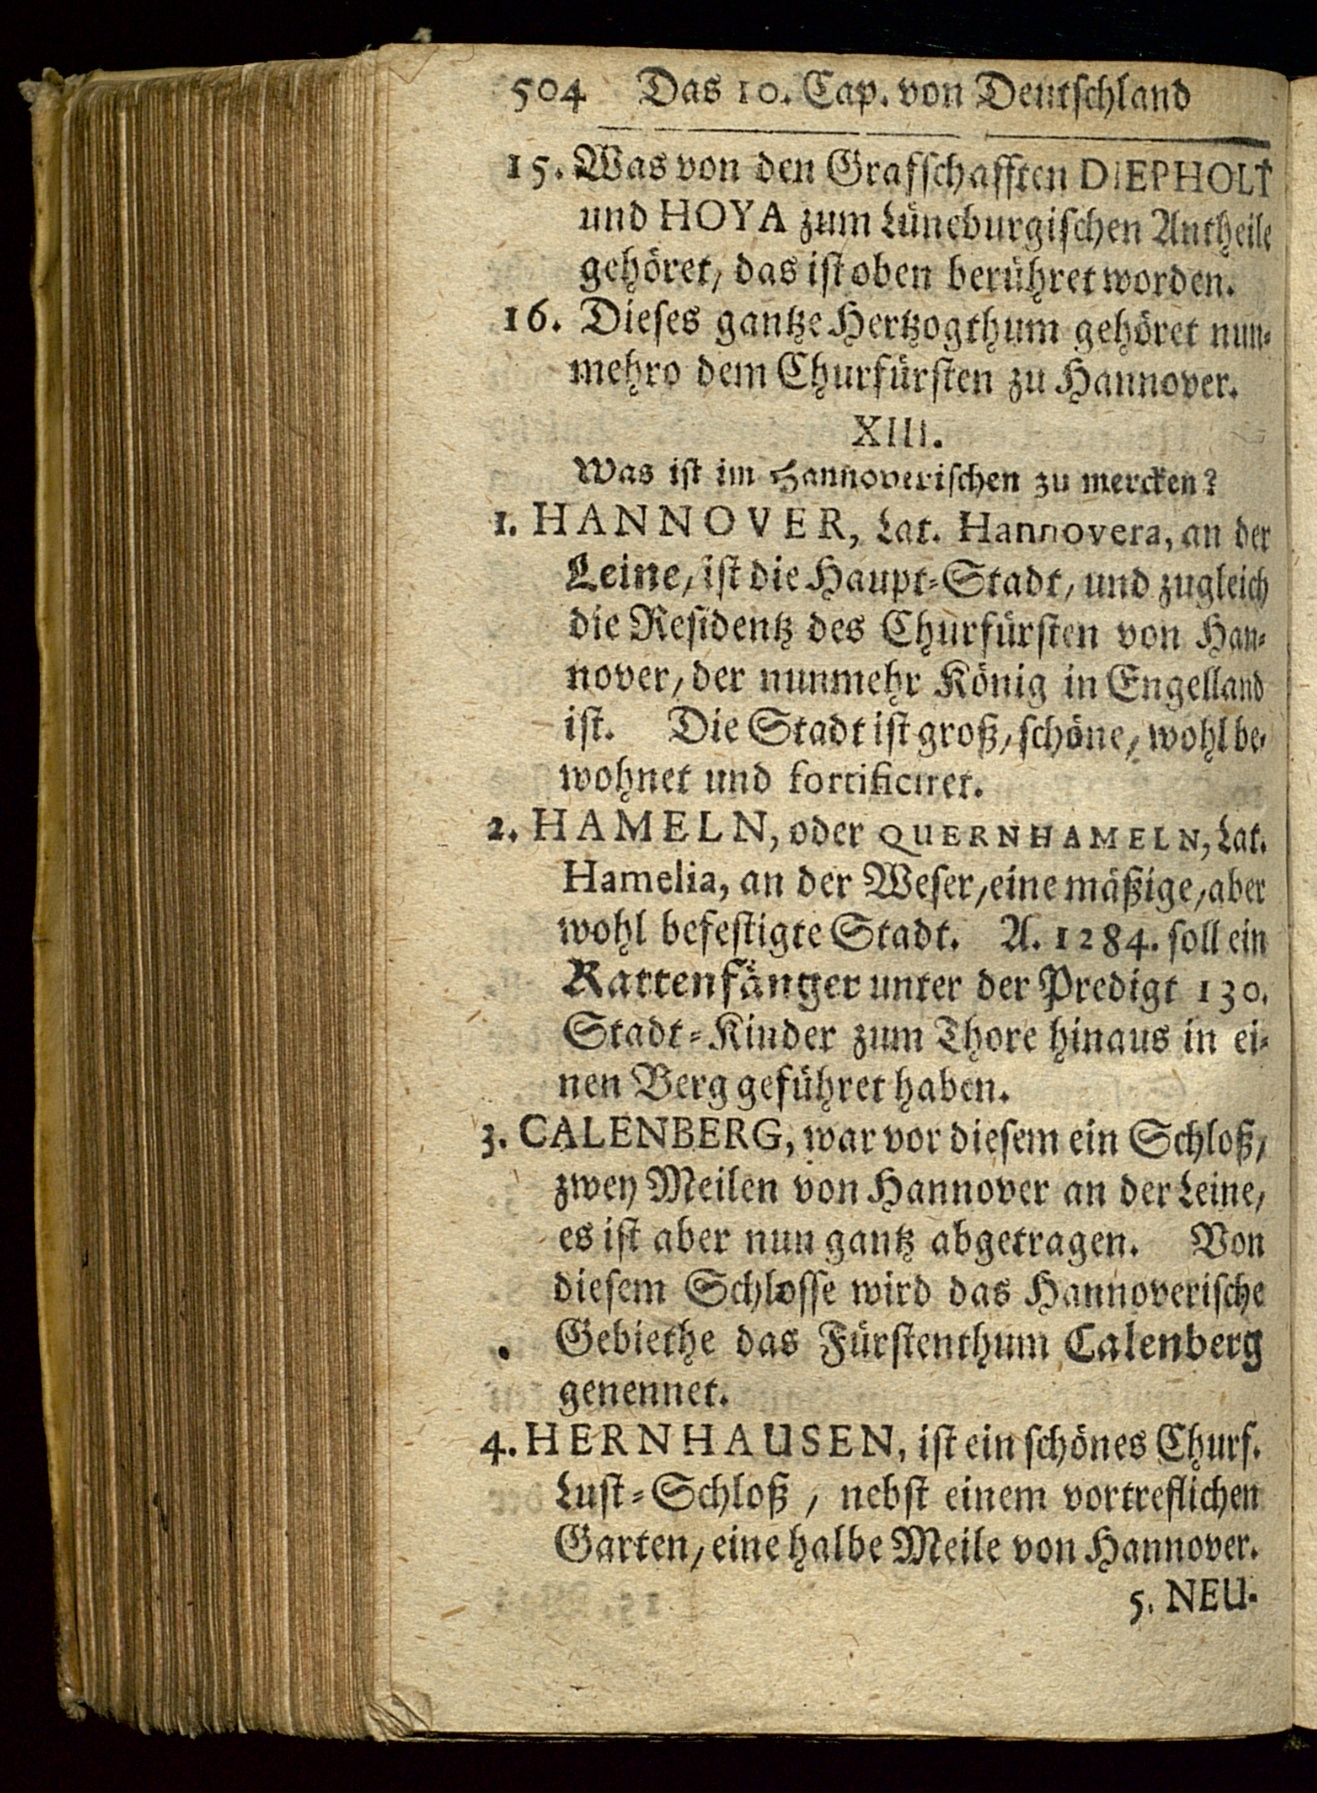 504 Das 10. Cap. von Deutschland
15. Was von den Grafschafften DIEPHOLT
und HOYA zum Lüneburgischen Antheile
gehöret, das ist oben berühret worden.
16. Dieses gantze Hertzogthum gehöret nun-
mehro dem Churfürsten zu Hannover.
XIII.
Was ist im Hannoverischen zu mercken?
1. HANNOVER, Lat. Hannovera, an der
Leine, ist die Haupt-Stadt, und zugleich
die Residentz des Churfürsten von Han-
nover, der nunmehr König in Engelland
ist. Die Stadt ist groß, schöne, wohl be-
wohnet und fortificiret.
2. HAMELN, oder QUERNHAMELN, Lat.
Hamelia, an der Weser, eine mäßige, aber
wohl befestigte Stadt. A. 1284. soll ein
Rattenfänger unter der Predigt 130.
Stadt-Kinder zum Thore hinaus in ei-
nen Berg geführet haben.
3. CALENBERG, war vor diesem ein Schloß,
zwey Meilen von Hannover an der Leine,
es ist aber nun gantz abgetragen. Von
diesem Schlosse wird das Hannoverische
Gebiethe das Fürstenthum Calenberg
genennet.
4. HERNHAUSEN, ist ein schönes Churf.
Lust-Schloß, nebst einem vortreflichen
Garten, eine halbe Meile von Hannover.
5. NEU-